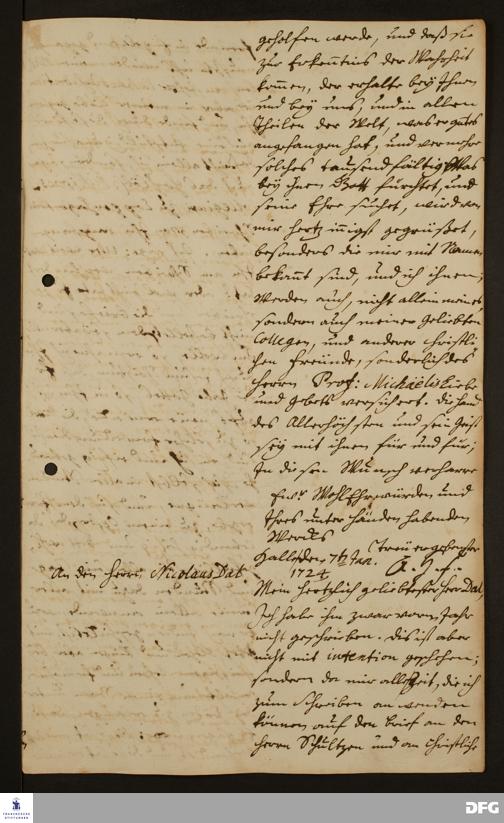 geholfen werde, und daß sie
zur Erkentnis der Wahrheit
kommen, der erhalte bey Ihnen
und bey uns, und in allen
Theilen der Welt, was er gutes
angefangen hat, und vermehre
solches tausendfältig. Was
bey ihnen Gott fürchtet, und
seine Ehre suchet, wird von
mir hertzinnigst gegrüßet,
besonders die mir mit Namen
bekannt sind, und ich ihnen;
Werden auch, nicht allein meiner,
sondern auch meiner geliebten
Collegen, und anderer christli-
chen Freunde, sonderlich des
Herrn Prof: Michaëlis Liebe
und Gebets versichert. Die Hand
des Allerhöchsten und sein Geist
sey mit ihnen für und für;
In diesem Wunsch verharre
Ewr WohlEhrwürden und
Ihres unter Händen habenden
Werckes
Halle den 7t Jan. Treuergebenster
1724
An den Herrn Nicolaus Dal.
Mein hertzlich geliebtester Herr Dal,
Ich habe ihm zwar vorm Jahr
nicht geschrieben. Dis ist aber
nicht mit intention geschehen;
sondern da mir alle Zeit, die ich
zum Schreiben anwenden
können auf den Brief an den
Herrn Schultzen und an Christliche
FRANCKESCHE STIFTUNGEN
DFG